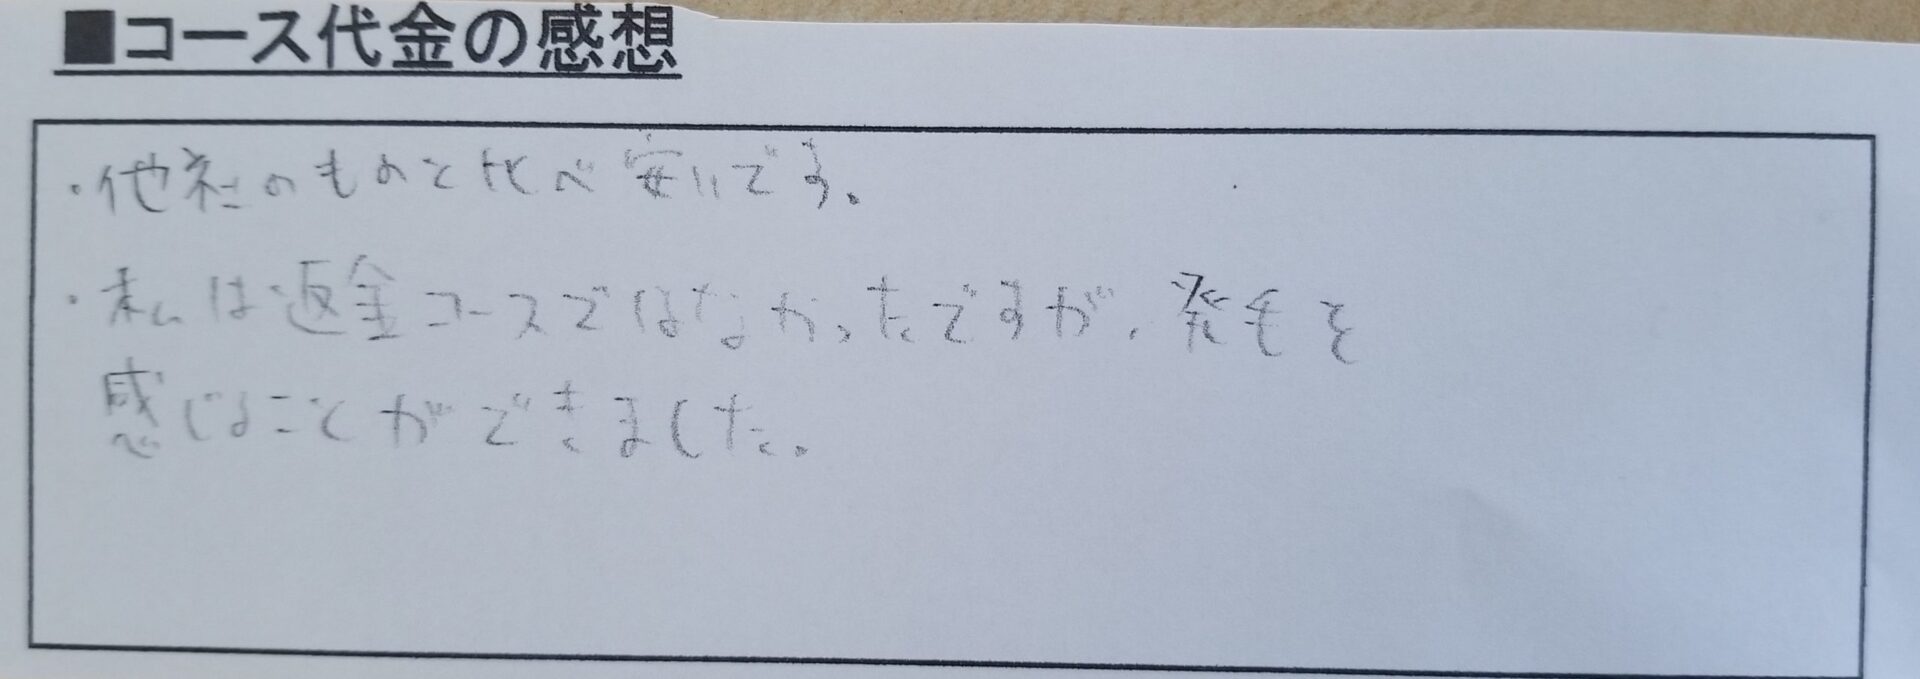 ■コース代金の感想
・他社のものと比べ安いです。
・私は返金コースではなかったですが、発毛を
感じることができました。